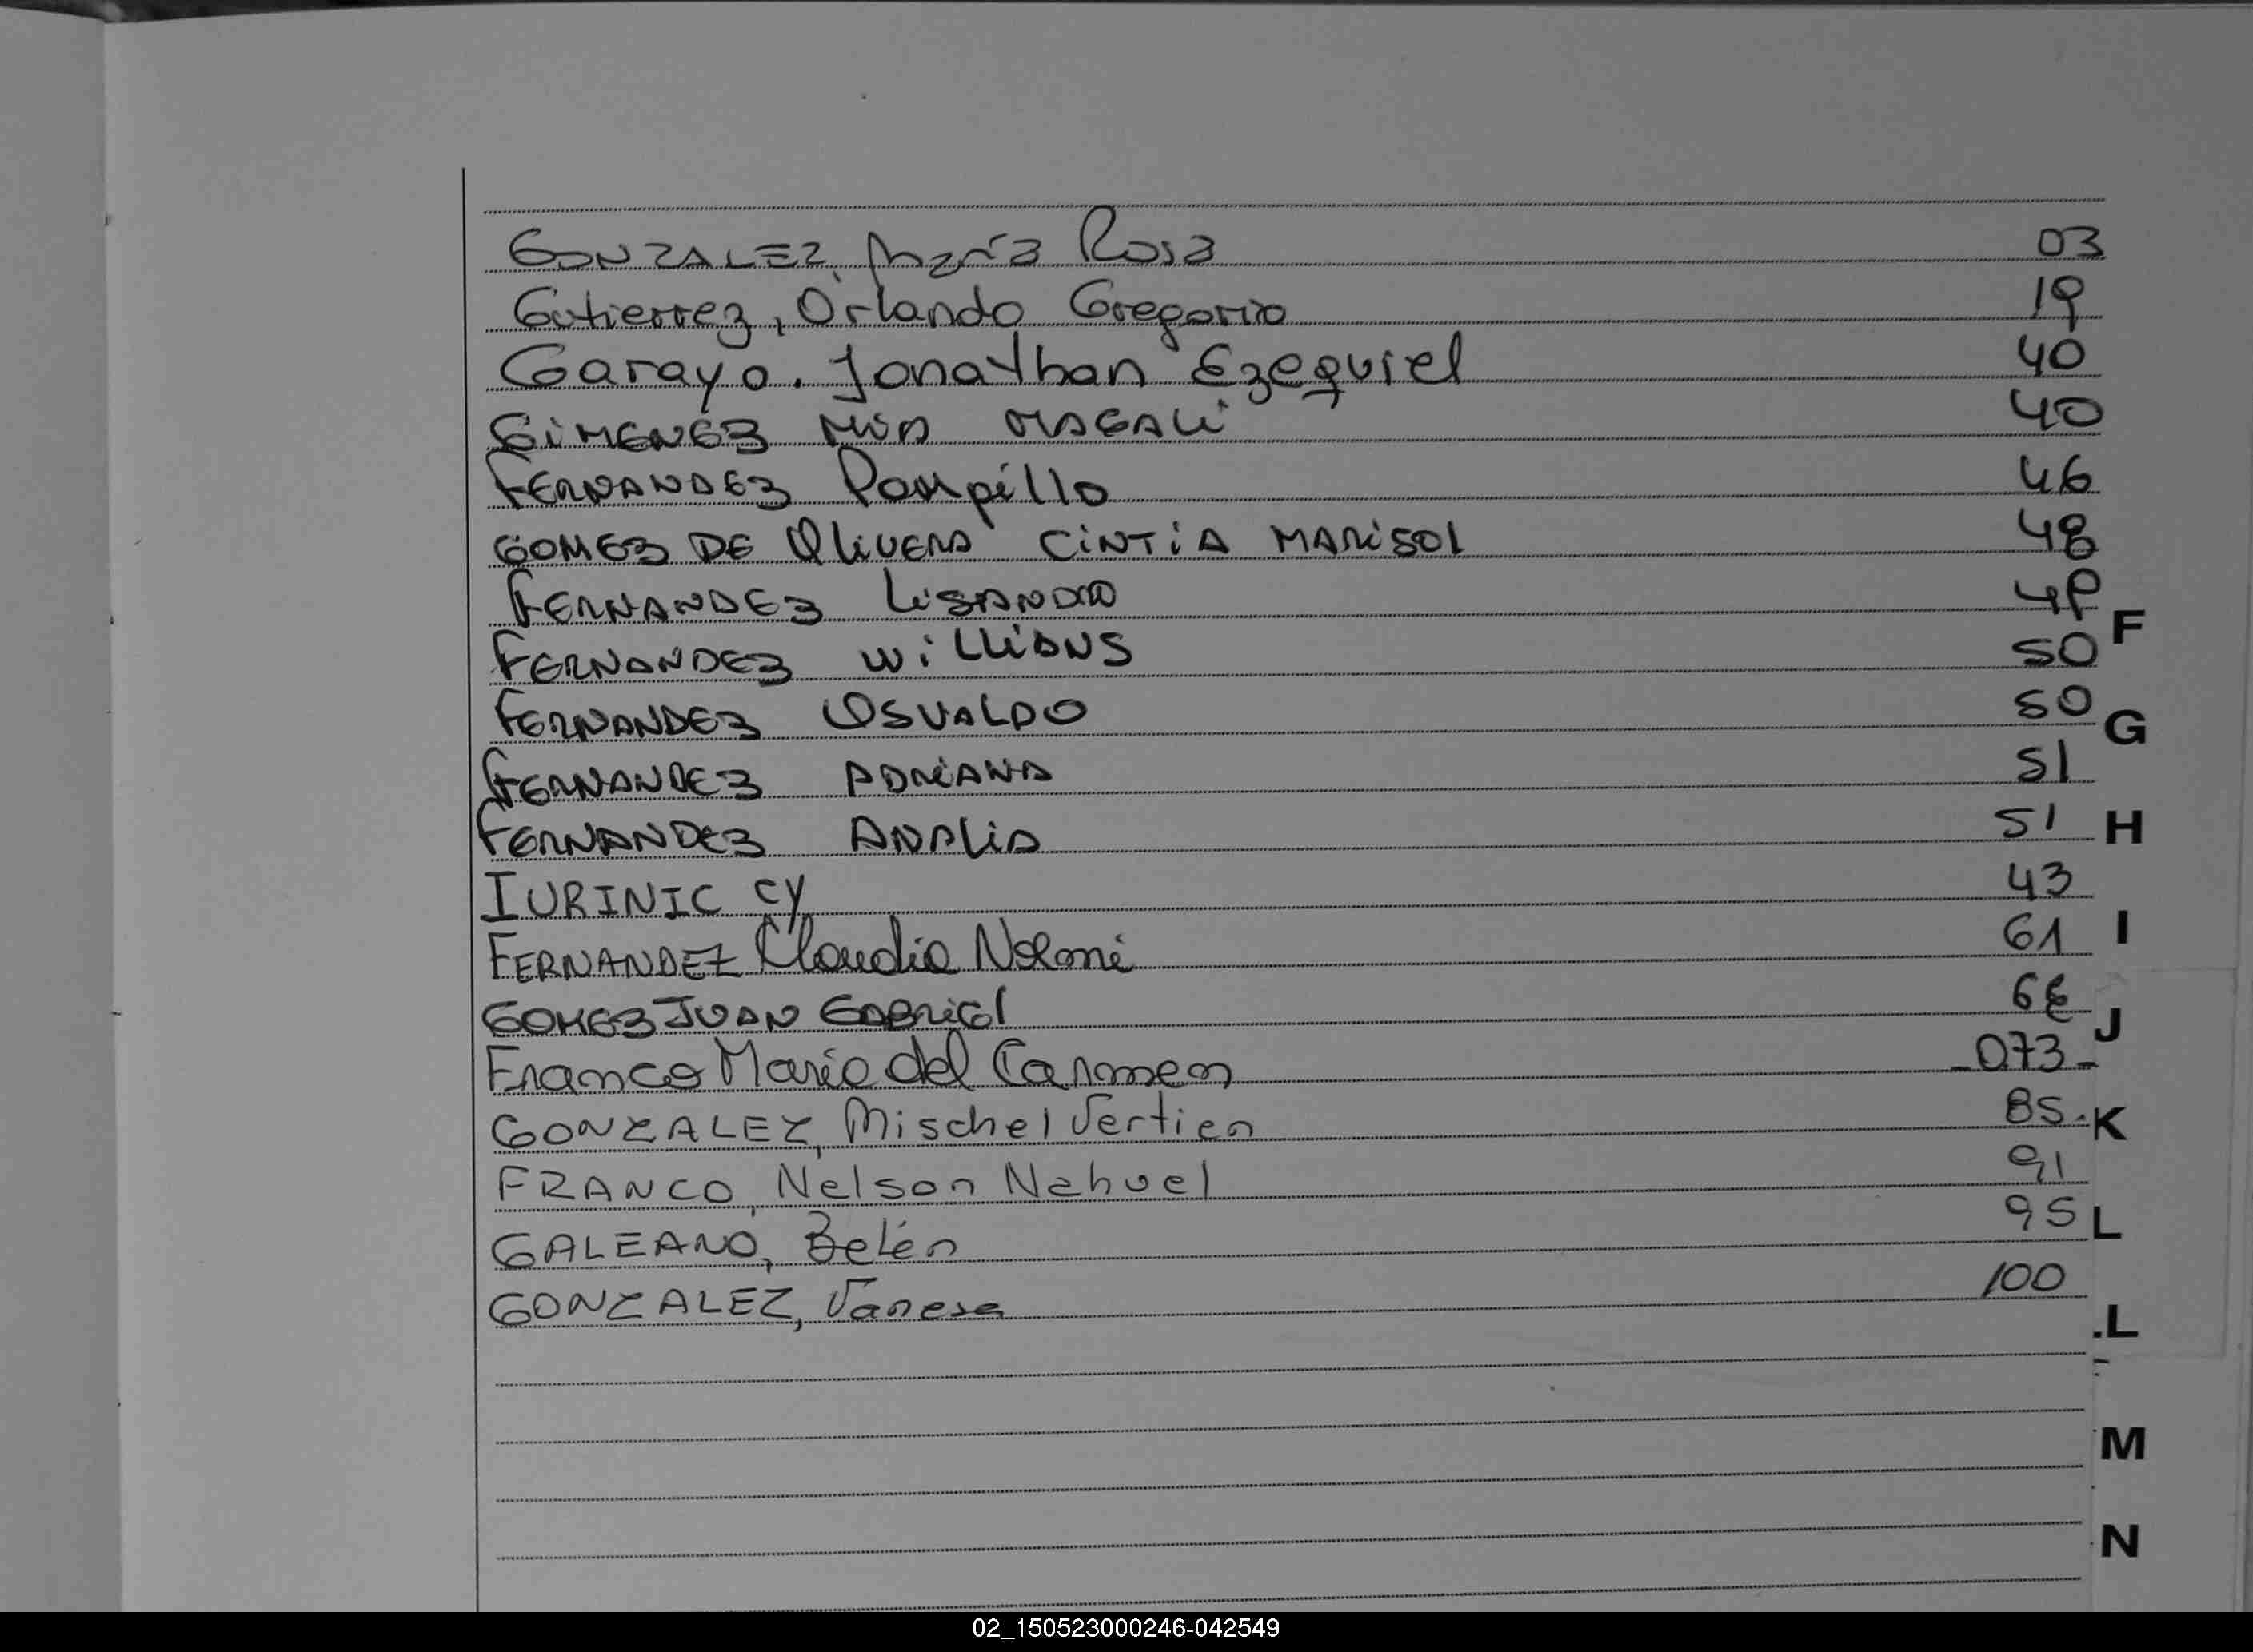 GONZALEZ, María Rosa 03
Gutierrez, Orlando Gregorio 19
Garayo. Jonathan Ezequiel 40
GIMENEZ MIA MAGALI 40
FERNANDEZ Pompillo 46
GOMEZ DE OLIVERA CINTIA MARISOL 48
FERNANDEZ LISANDRO 49
F
FERNANDEZ WILLIANS 50
FERNANDEZ OSVALDO 50
G
FERNANDEZ ADRIANA 51
FERNANDEZ ANALIA 51
H
IURINIC CY 43
FERNANDEZ Claudia Noemi 61
I
GOMEZ JUAN GABRIEL
J
Franco Maria del Carmen _073_
GONZALEZ, Mischel Vertien 85.
K
FRANCO, Nelson Nahuel 91
GALEANO, Belén 95
L
GONZALEZ, Vanesa 100
LL
M
N
02_150523000246-042549